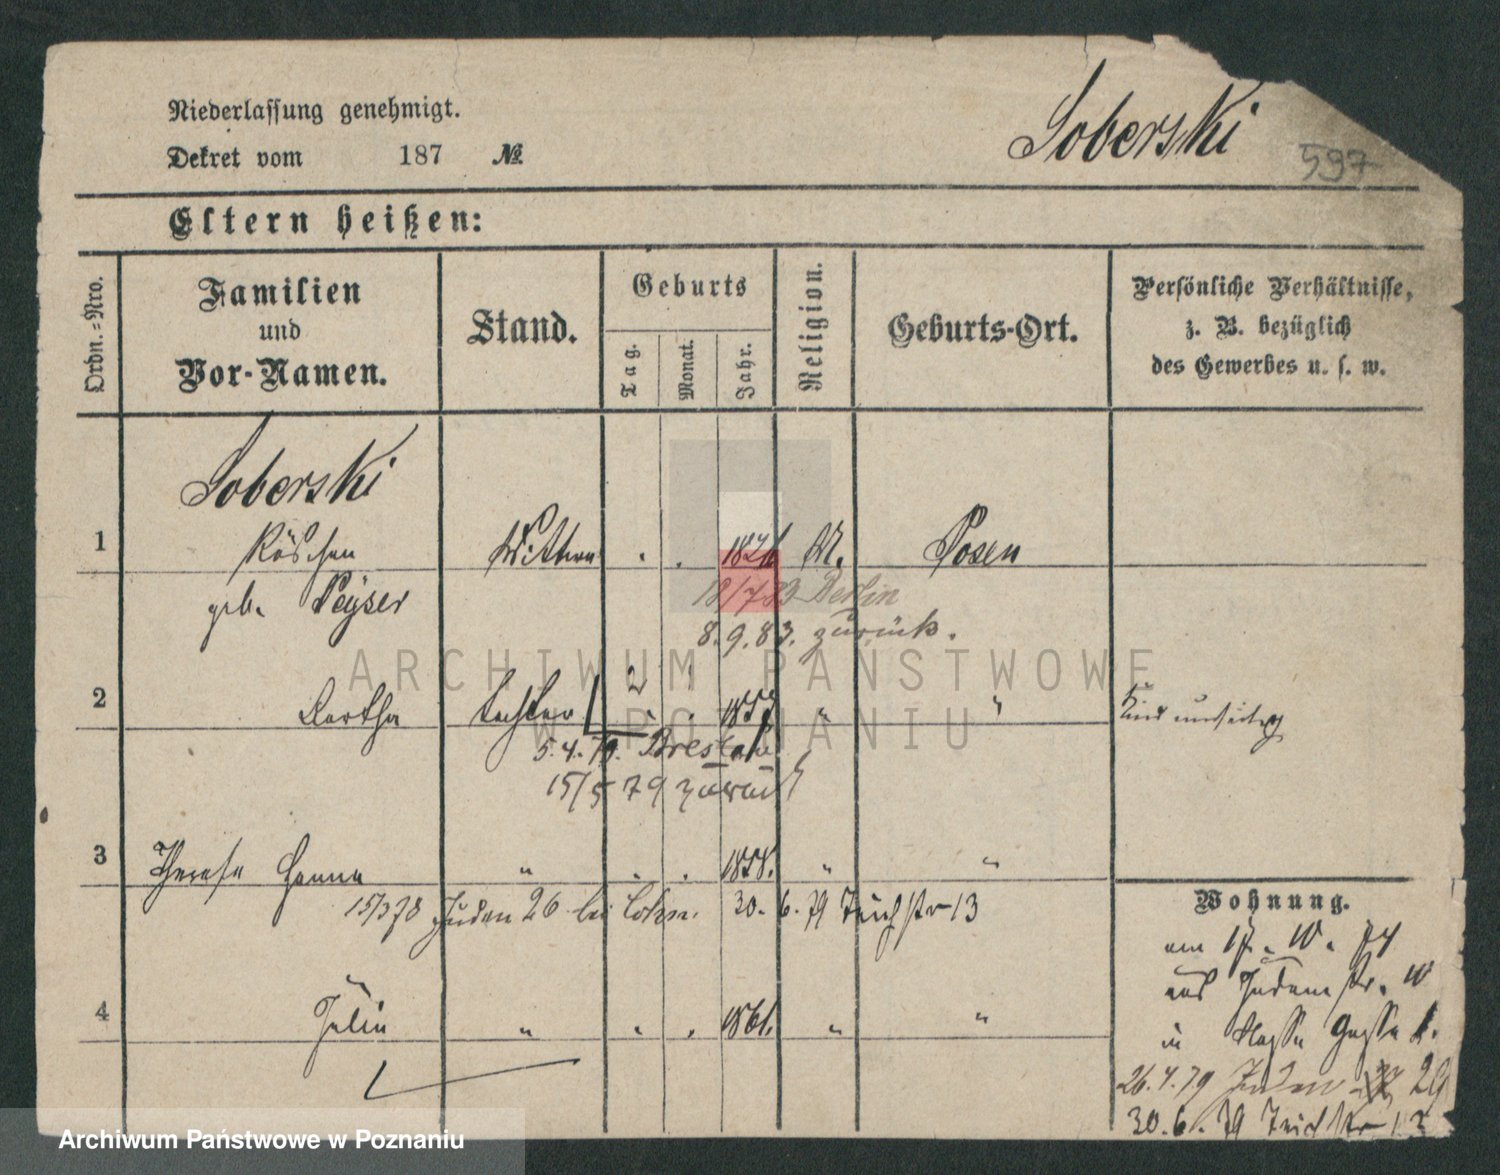 Niederlassung genehmigt.
Dekret vom 187 №
Soberski
597
Eltern heißen:
Ordn.-Nro.
Familien und Vor-Namen.
Stand.
Geburts
Tag.
Monat.
Jahr.
Religion.
Geburts-Ort.
Persönliche Verhältnisse,
z. B. bezüglich
des Gewerbes u. s. w.
Soberski
1 Röschen Wittwe . . 1826 M. Posen
geb. Peyser 18/7 83 Berlin
8. 9. 83. zurück.
2 Bertha Tochter 2 1857 " "
Kind
5. 4. 79. Breslau
15/5 79 zurück
3 Therese Hanna " . . 1858. " "
15/3 78 Juden 26 bei Cohn. 30. 6. 79 Teichstr 13
4 Julie " . . 1861. " "
Wohnung.
am 17. 10. 74
aus Judenstr. 10
in Nasse Gasse 1.
26. 4. 79 Juden 29
30. 6. 79 Teichstr 13
ARCHIWUM PAŃSTWOWE
W POZNANIU
Archiwum Państwowe w Poznaniu